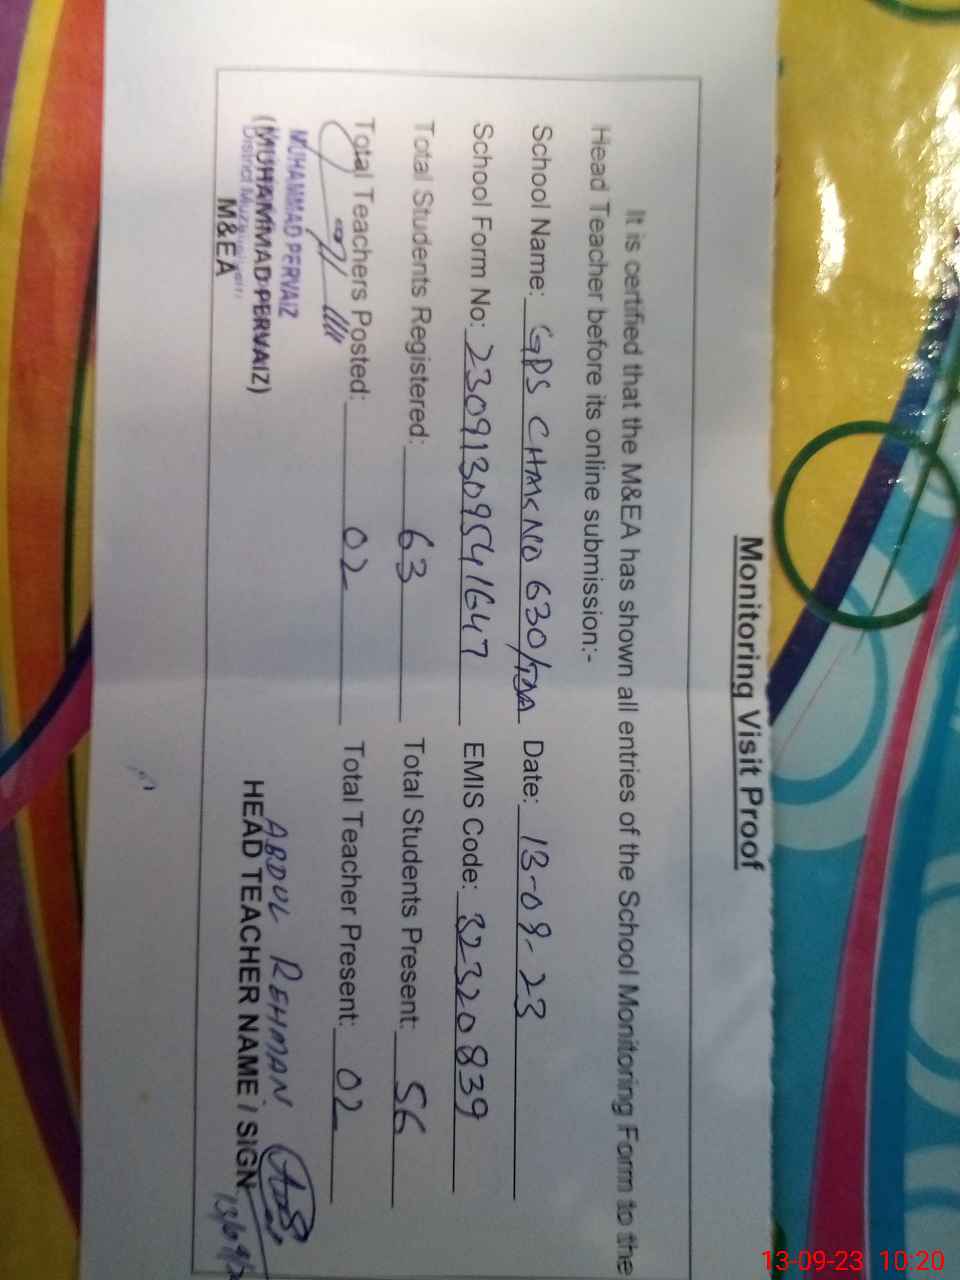 Monitoring Visit Proof
It is certified that the M&EA has shown all entries of the School Monitoring Form to the
Head Teacher before its online submission:-
School Name: GPS CHAK NO 630/TDA Date: 13-09-23
School Form No: 23091309541647 EMIS Code: 32320839
Total Students Registered: 63 Total Students Present: 56
Total Teachers Posted: 02 Total Teacher Present: 02
MUHAMMAD PERVAIZ
ABDUL REHMAN
(MUHAMMAD PERVAIZ)
HEAD TEACHER NAME / SIGN
M&EA
13-09-23 10:20